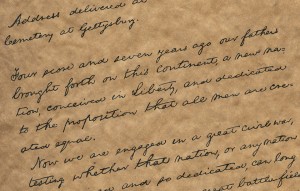 Address delivered at
Cemetery at Gettysburg.
Four score and seven years ago our fathers
brought forth on this continent, a new na-
tion, conceived in Liberty, and dedicated
to the proposition that all men are cre-
ated equal.
Now we are engaged in a great civil war,
testing whether that nation, or any nation
and so dedicated, can long
great battlefield